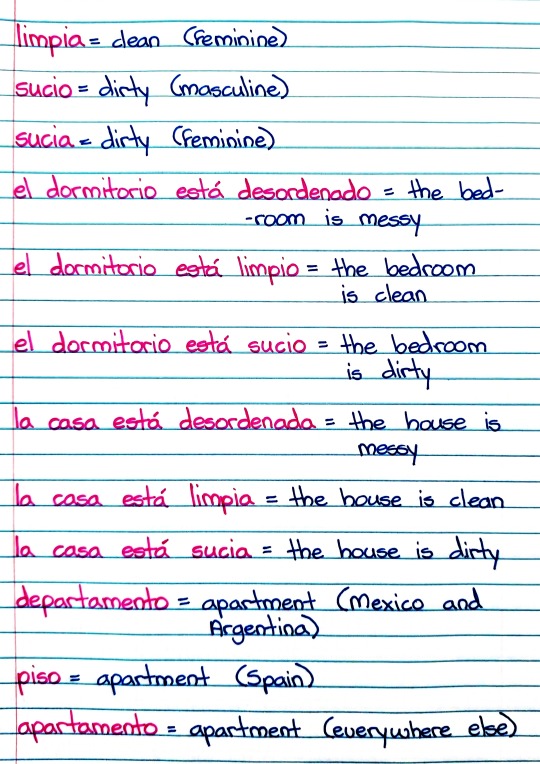 limpia = clean (feminine)
sucio = dirty (masculine)
sucia = dirty (feminine)
el dormitorio está desordenado = the bed-
-room is messy
el dormitorio está limpio = the bedroom
is clean
el dormitorio está sucio = the bedroom
is dirty
la casa está desordenada = the house is
messy
la casa está limpia = the house is clean
la casa está sucia = the house is dirty
departamento = apartment (Mexico and
Argentina)
piso = apartment (Spain)
apartamento = apartment (everywhere else)